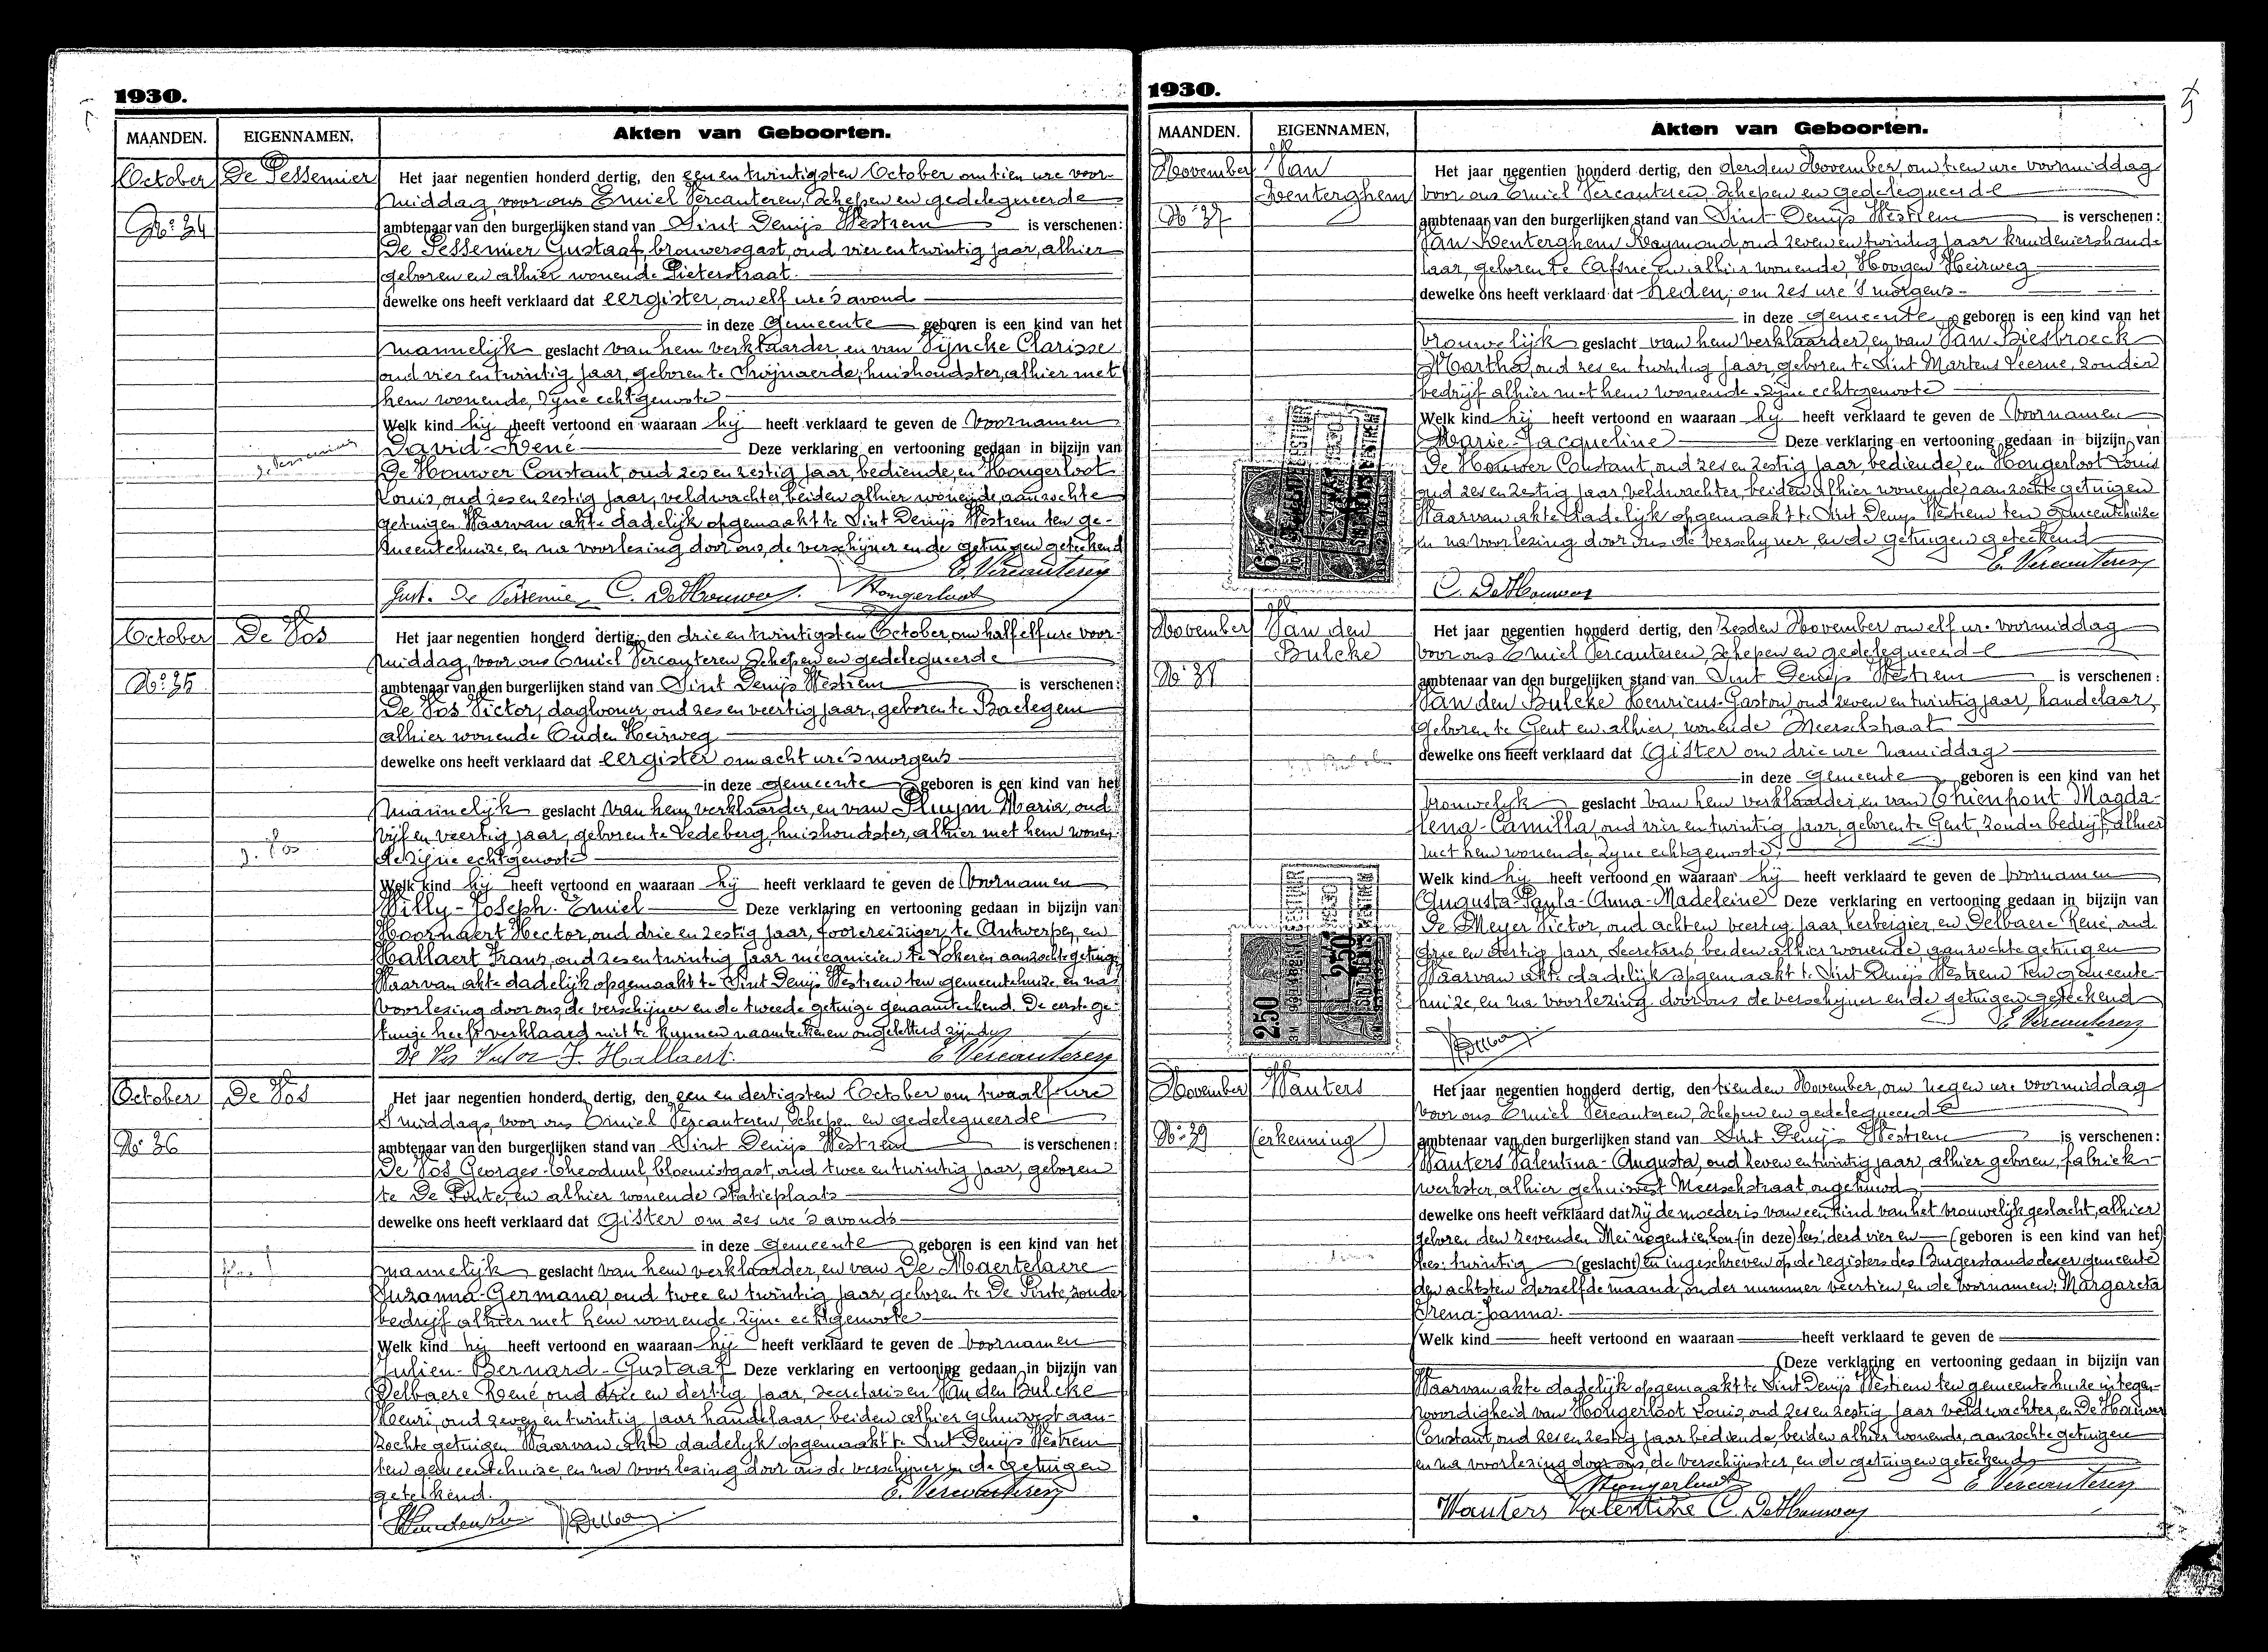 1930.
MAANDEN. EIGENNAMEN. Akten van Geboorten.
October De Pessemier Het jaar negentien honderd dertig, den een en twintigsten October om tien ure voor-
middag, voor ons Emiel Vercauteren, Schepen en gedelegueerde
No 34 ambtenaar van den burgerlijken stand van Sint Denijs Westrem is verschenen:
De Pessemier Gustaaf, brouwersgast, oud vier en twintig jaar, alhier
geboren en alhier wonende Pieterstraat.
dewelke ons heeft verklaard dat eergister, om elf ure 's avonds
in deze Gemeente geboren is een kind van het
mannelijk geslacht van hem verklaarder en van Vijncke Clarisse
oud vier en twintig jaar, geboren te Swijnaerde, huishoudster, alhier met
hem wonende, zijne echtgenoote
Welk kind hij heeft vertoond en waaraan hij heeft verklaard te geven de voornamen
David-René Deze verklaring en vertooning gedaan in bijzijn van
De Houwer Constant, oud zes en zestig jaar, bediende, en Hongerloot
Louis, oud zes en zestig jaar, veldwachter, beiden alhier wonende, aanzochte
getuigen. Waarvan akte dadelijk opgemaakt te Sint Denijs Westrem ten ge-
meentehuize, en na voorlezing door ons, de verschijner en de getuigen geteekend
E. Vercauteren
Gust. De Pessemier C. DeHouwer. Hongerloot
October De Vos Het jaar negentien honderd dertig, den drie en twintigsten October, om half elf ure voor-
middag, voor ons Emiel Vercauteren Schepen en gedelegueerde
No 35 ambtenaar van den burgerlijken stand van Sint Denijs Westrem is verschenen:
De Vos Victor, daglooner, oud zes en veertig jaar, geboren te Baelegem
alhier wonende Ouden Heirweg
dewelke ons heeft verklaard dat eergister om acht ure 's morgens
in deze Gemeente geboren is een kind van het
mannelijk geslacht van hem verklaarder, en van Pluym Maria, oud
vijf en veertig jaar, geboren te Ledeberg, huishoudster, alhier met hem wonen-
de zijne echtgenoote
Welk kind hij heeft vertoond en waaraan hij heeft verklaard te geven de voornamen
Willy-Joseph-Emiel Deze verklaring en vertooning gedaan in bijzijn van
Hoornaert Hector, oud drie en zestig jaar, foorreiziger, te Antwerpen, en
Hallaert Frans, oud zes en twintig jaar mecanicien te Lokeren aanzochte getuigen
Waarvan akte dadelijk opgemaakt te Sint Denijs Westrem ten gemeentehuize, en na
voorlezing door ons, de verschijner en de tweede getuige genaamteekend. De eerste ge-
tuige heeft verklaard niet te kunnen naamteekenen ongeletterd zijnde
De Vos Victor F. Hallaert. E Vercauteren
October De Vos Het jaar negentien honderd dertig, den een en dertigsten October om twaalf ure
's middags, voor ons Emiel Vercauteren, Schepen en gedelegueerde
No 36 ambtenaar van den burgerlijken stand van Sint Denijs Westrem is verschenen:
De Vos Georges-Theoduul, bloemistgast, oud twee en twintig jaar, geboren
te De Pinte, en alhier wonende Statieplaats
dewelke ons heeft verklaard dat Gister om zes ure 's avonds
in deze Gemeente geboren is een kind van het
mannelijk geslacht van hem verklaarder, en van De Maertelaere
Suzanna-Germana, oud twee en twintig jaar, geboren te De Pinte, zonder
bedrijf alhier met hem wonende, zijne echtgenoote
Welk kind hij heeft vertoond en waaraan hij heeft verklaard te geven de voornamen
Julien-Bernard-Gustaaf Deze verklaring en vertooning gedaan in bijzijn van
Delbaere René, oud drie en dertig jaar, secretaris en Van den Bulcke
Henri, oud zeven en twintig jaar handelaar, beiden alhier gehuisvest aan-
zochte getuigen Waarvan akte dadelijk opgemaakt te Sint Denijs Westrem
ten gemeentehuize, en na voorlezing door ons de verschijner en de getuigen
geteekend. E. Vercauteren
1930.
MAANDEN. EIGENNAMEN, Akten van Geboorten.
November Van Het jaar negentien honderd dertig, den derden November, om tien ure voormiddag
Wenterghem voor ons Emiel Vercauteren, Schepen en gedelegueerde
No 37 ambtenaar van den burgerlijken stand van Sint Denijs Westrem is verschenen:
Van Wenterghem Raymond, oud zeven en twintig jaar kruideniershande-
laar, geboren te Afsné en alhier wonende, Hoogen Heirweg
dewelke ons heeft verklaard dat heden, om zes ure 's morgens
in deze Gemeente geboren is een kind van het
vrouwelijk geslacht van hem verklaarder, en van Van Biesbroeck
Martha, oud zes en twintig jaar, geboren te Sint Martens Leerne, zonder
bedrijf alhier met hem wonende, zijne echtgenoote
Welk kind hij heeft vertoond en waaraan hij heeft verklaard te geven de voornamen
Marie-Jacqueline Deze verklaring en vertooning gedaan in bijzijn van
De Houwer Constant, oud zes en zestig jaar, bediende, en Hongerloot Louis
oud zes en zestig jaar, veldwachter, beiden alhier wonende, aanzochte getuigen
Waarvan akte dadelijk opgemaakt te Sint Denijs Westrem ten gemeentehuize
en na voorlezing door ons de verschijner, en de getuigen geteekend
E. Vercauteren
C. DeHouwer
November Van den Het jaar negentien honderd dertig, den zesden November om elf ure voormiddag
Bulcke voor ons Emiel Vercauteren, Schepen en gedelegueerde
No 38 ambtenaar van den burgerlijken stand van Sint Denijs Westrem is verschenen:
Van den Bulcke Henricus-Gaston, oud zeven en twintig jaar, handelaar,
geboren te Gent en alhier, wonende Meerschstraat
dewelke ons heeft verklaard dat Gister om drie ure namiddag
in deze Gemeente geboren is een kind van het
vrouwelijk geslacht van hem verklaarder, en van Thienpont Magda-
lena-Camilla, oud vier en twintig jaar, geboren te Gent, zonder bedrijf, alhier
met hem wonende, zijne echtgenoote,
Welk kind hij heeft vertoond en waaraan hij heeft verklaard te geven de voornamen
Augusta-Paula-Anna-Madeleine Deze verklaring en vertooning gedaan in bijzijn van
De Meyer Victor, oud acht en veertig jaar, herbergier, en Delbaere René, oud
drie en dertig jaar, Secretaris, beiden alhier wonende, aanzochte getuigen
Waarvan akte dadelijk opgemaakt te Sint Denijs Westrem ten gemeente-
huize, en na voorlezing door ons de verschijner en de getuigen geteekend
2.50 E. Vercauteren
November Wauters Het jaar negentien honderd dertig, den tienden November, om negen ure voormiddag
voor ons Emiel Vercauteren, Schepen en gedelegueerde
No 39 (erkenning) ambtenaar van den burgerlijken stand van Sint Denijs Westrem is verschenen:
Wauters Valentina-Augusta, oud zeven en twintig jaar, alhier geboren, fabriek-
werkster, alhier gehuisvest Meerschstraat, ongehuwd
dewelke ons heeft verklaard dat zij de moeder is van een kind van het vrouwelijk geslacht, alhier
geboren den zevenden Mei negentien hon (in deze) lees: derd vier en (geboren is een kind van het)
lees: twintig (geslacht) en ingeschreven op de registers des Burgerstands dezer gemeente
den achtsten derzelfde maand, onder nummer veertien, en de voornamen: Margareta
Irena-Joanna.
Welk kind heeft vertoond en waaraan heeft verklaard te geven de
(Deze verklaring en vertooning gedaan in bijzijn van
Waarvan akte dadelijk opgemaakt te Sint Denijs Westrem ten gemeentehuize in tegen-
woordigheid van Hongerloot Louis, oud zes en zestig jaar veldwachter, en De Houwer
Constant, oud zes en zestig jaar bediende, beiden alhier wonende, aanzochte getuigen
en na voorlezing door ons, de verschijnster, en de getuigen geteekend
Hongerloot E Vercauteren
Wauters Valentine C. DeHouwer